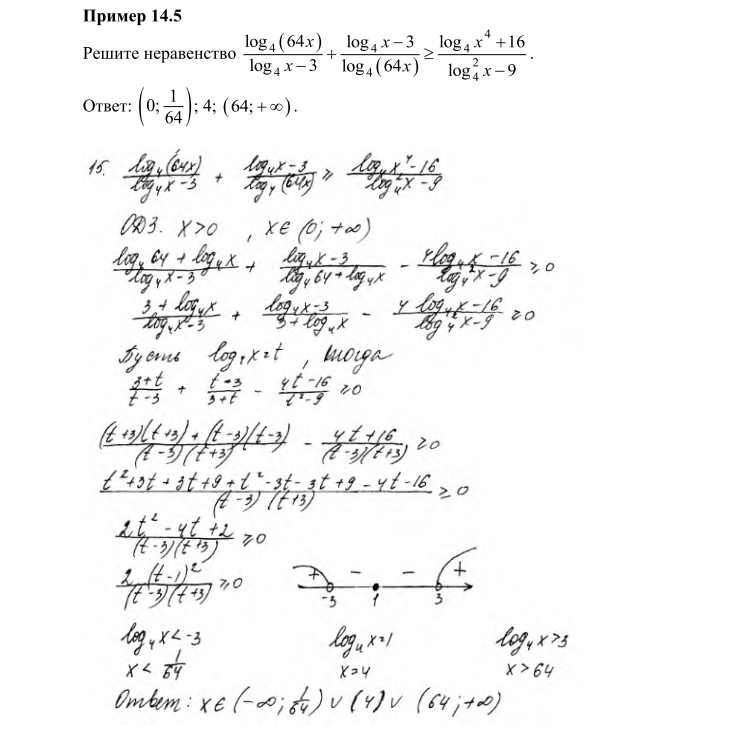 Пример 14.5
Решите неравенство log₄(64x)/(log₄x−3) + (log₄x−3)/log₄(64x) ≥ (log₄x⁴+16)/(log₄²x−9).
Ответ: (0; 1/64); 4; (64; +∞).
15. log₄(64x)/(log₄x−3) + (log₄x−3)/log₄(64x) ≥ (log₄x⁴−16)/(log₄²x−9)
ОДЗ. x>0, x∈(0; +∞)
(log₄64+log₄x)/(log₄x−3) + (log₄x−3)/(log₄64+log₄x) − (4log₄x−16)/(log₄²x−9) ≥0
(3+log₄x)/(log₄x−3) + (log₄x−3)/(3+log₄x) − (4log₄x−16)/(log₄²x−9) ≥0
Пусть log₄x=t, тогда
(3+t)/(t−3) + (t−3)/(3+t) − (4t−16)/(t²−9) ≥0
((t+3)(t+3)+(t−3)(t−3))/((t−3)(t+3)) − (4t+16)/((t−3)(t+3)) ≥0
(t²+3t+3t+9+t²−3t−3t+9−4t−16)/((t−3)(t+3)) ≥0
(2t²−4t+2)/((t−3)(t+3)) ≥0
2(t−1)²/((t−3)(t+3)) ≥0
+ − − +
−3 1 3
log₄x<−3 log₄x=1 log₄x>3
x<1/64 x=4 x>64
Ответ: x∈(−∞; 1/64)∪(4)∪(64; +∞)